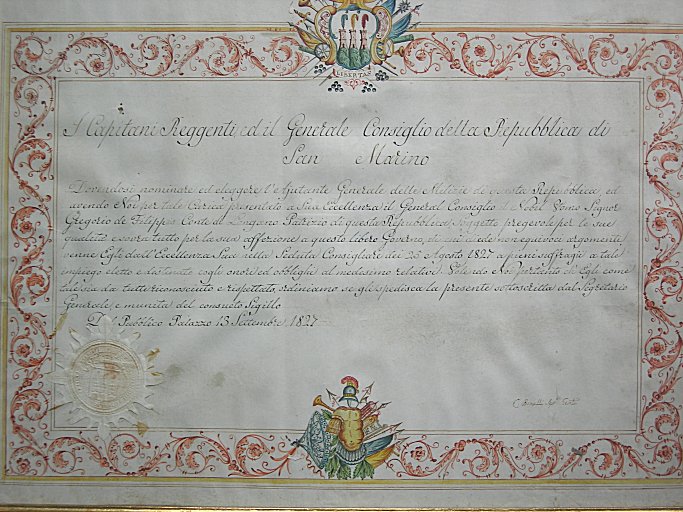 LIBERTAS
I Capitani Reggenti, ed il Generale Consiglio della Repubblica di
San Marino
Dovendosi nominare ed eleggere l'Ajutante Generale delle Milizie di questa Repubblica, ed
avendo Noi per tale Carica presentato a Sua Eccellenza il General Consiglio il Nobil Uomo Signor
Gregorio de Filippis Conte di Longano Patrizio di questa Repubblica Soggetto pregevole per le sue
qualità e sovra tutto per la sua affezione a questo libero Governo, di più dato non equivoci argomenti
venne Egli dall'Eccellenza Sua nella Seduta Consigliare dei 23 Agosto 1827 a pieni suffragi a tale
impiego eletto e destinato cogli onori ed obblighi al medesimo relativi. Volendo Noi pertanto che Egli come
tale sia da tutti riconosciuto e rispettato, ordiniamo se gli spedisca la presente sottoscritta dal Segretario
Generale, e munita del consueto Sigillo
Dal Pubblico Palazzo 13 Settembre 1827